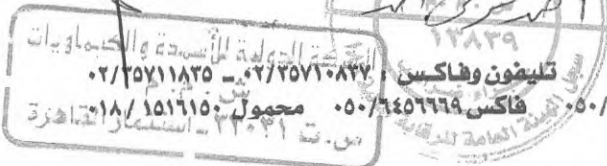 ١٢٨٣٩
الشركة الدولية للأسمدة والكيماويات
تليفون وفاكس : ٠٢/٣٥٧١٠٨٣٧ ـ ٠٢/٣٥٧١١٨٣٥
ش.م.م
٠٥٠/ فاكس ٠٥٠/٦٤٥٦٦٦٩ محمول ٠١٨/١٥١٦١٥٠
س.ت ٣٣٠٣١ - استثمار القاهرة
سجل الهيئة العامة للرقابة